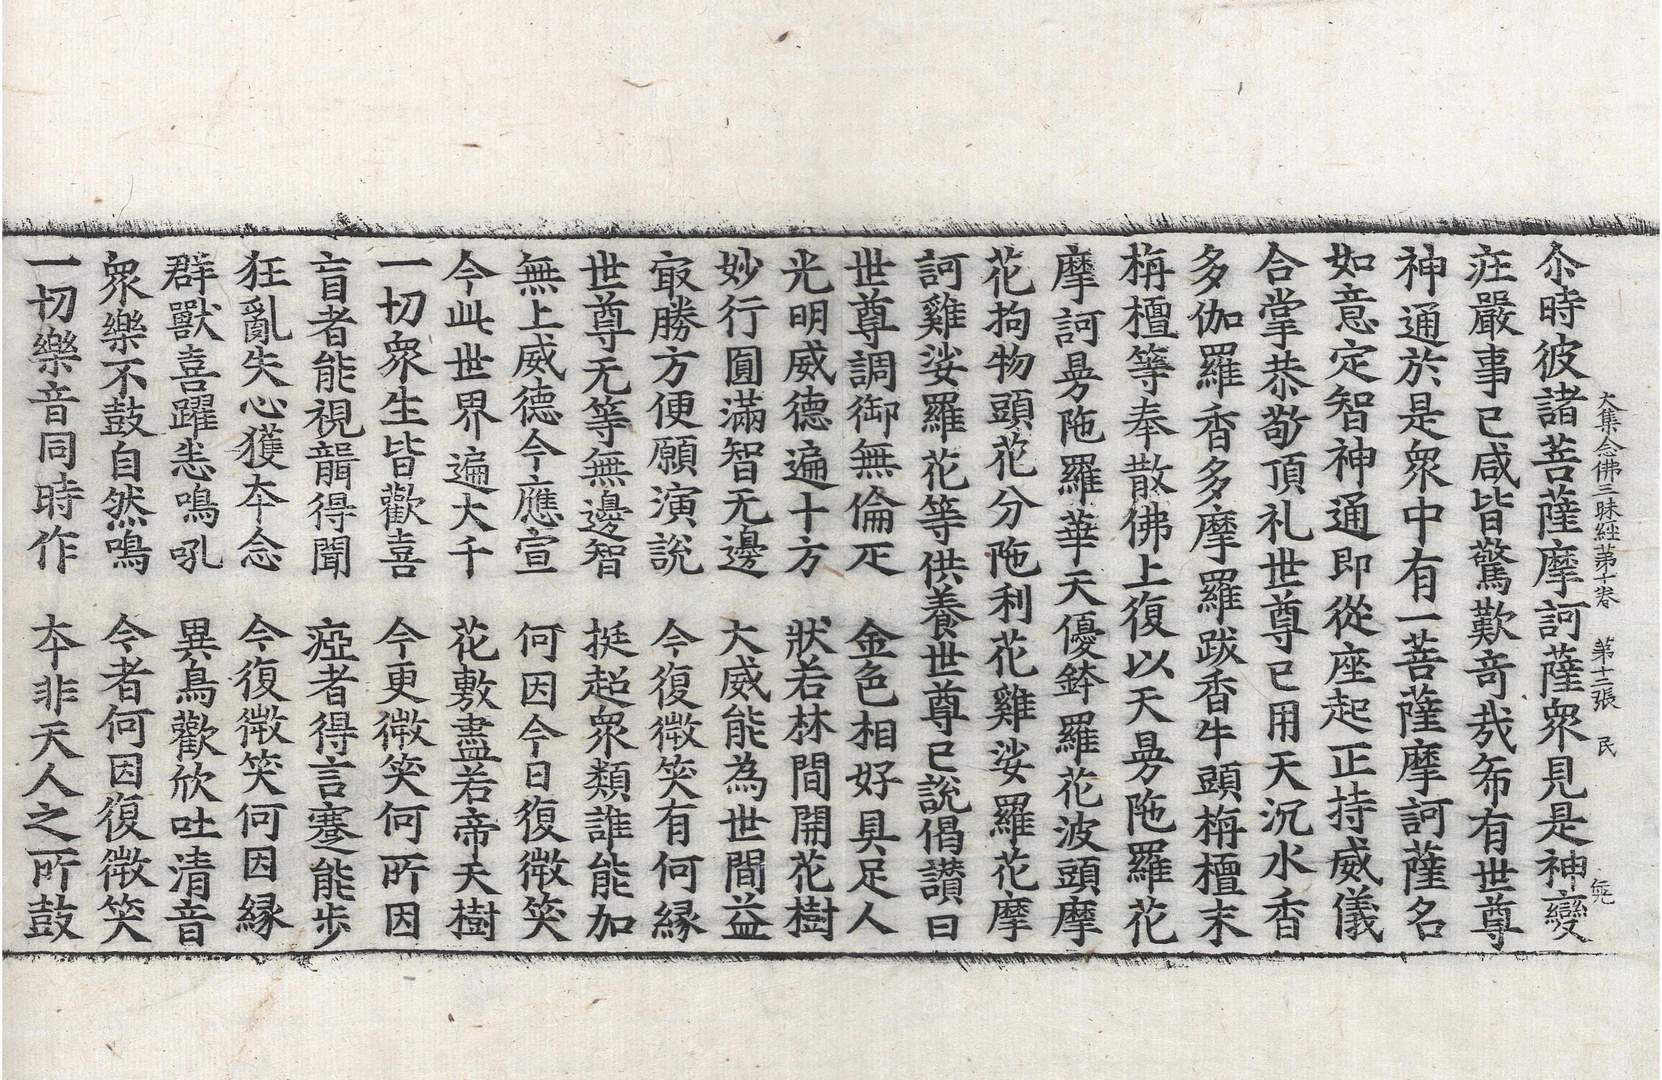 大集念佛三昧經第十卷　第十二張　民
尒時彼諸菩薩摩訶薩衆見是神變
㽵嚴事已咸皆驚歎竒㢤希有世尊
神通於是衆中有一菩薩摩訶薩名
如意定智神通即從座起正持威儀
合掌恭敬頂礼世尊已用天沉水香
多伽羅香多摩羅跋香牛頭栴檀末
栴檀等奉散佛上復以天曼陁羅花
摩訶曼陁羅華天優鉢羅花波頭摩
花拘物頭花分陁利花雞娑羅花摩
訶雞娑羅花等供養世尊已說偈讃曰
世尊調御無倫疋　金色相好具足人
光明威德遍十方　狀若林間開花樹
妙行圓滿智无邊　大威能為世間益
㝡勝方便願演說　今復微笑有何縁
世尊无等無邊智　挺超衆類誰能加
無上威德今應宣　何因今日復微笑
今此世界遍大千　花敷盡若帝天樹
一切衆生皆歡喜　今更微笑何所因
盲者能視聾得聞　瘂者得言蹇能步
狂亂失心獲夲念　今復微笑何因縁
群獸喜躍悉鳴吼　異鳥歡欣吐清音
衆樂不鼓自然鳴　今者何因復微笑
一切樂音同時作　夲非天人之所鼓